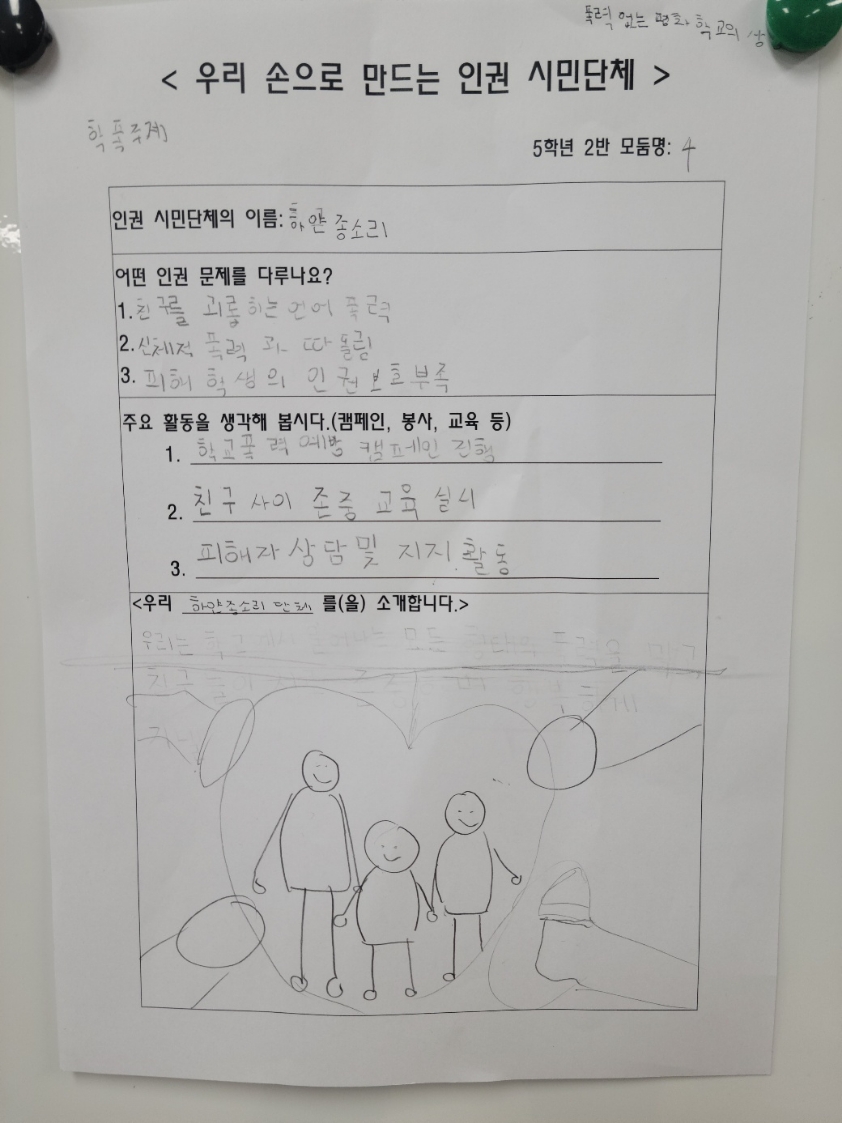 폭력 없는 평화 학교의 상
< 우리 손으로 만드는 인권 시민단체 >
학폭주제
5학년 2반 모둠명: 4
인권 시민단체의 이름: 하얀종소리
어떤 인권 문제를 다루나요?
1. 친구를 괴롭하는 언어 폭력
2. 신체적 폭력 과 따돌림
3. 피해 학생의 인권 보호 부족
주요 활동을 생각해 봅시다.(캠페인, 봉사, 교육 등)
1. 학교폭력 예방 캠페인 진행
2. 친구 사이 존중 교육 실시
3. 피해자 상담 및 지지 활동
<우리 하얀종소리 단체 를(을) 소개합니다.>
우리는 학교에서 일어나는 모든 형태의 폭력을 막고